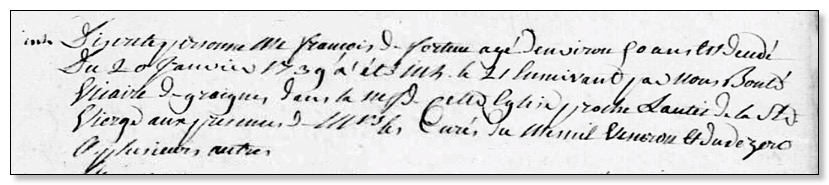 inh Discrette personne Me françois de fortune agé denviron 50 ans est decedé
Du 20 Janvier 1739 a été inh. le 21 suivant par nous Boulé
Vicaire de graignes dans la nef de cette Eglise proche Lautel de la Ste
Vierge aux presences de Mrs les Curés du Mesnil Veneron et du dezero
et plusieurs autres